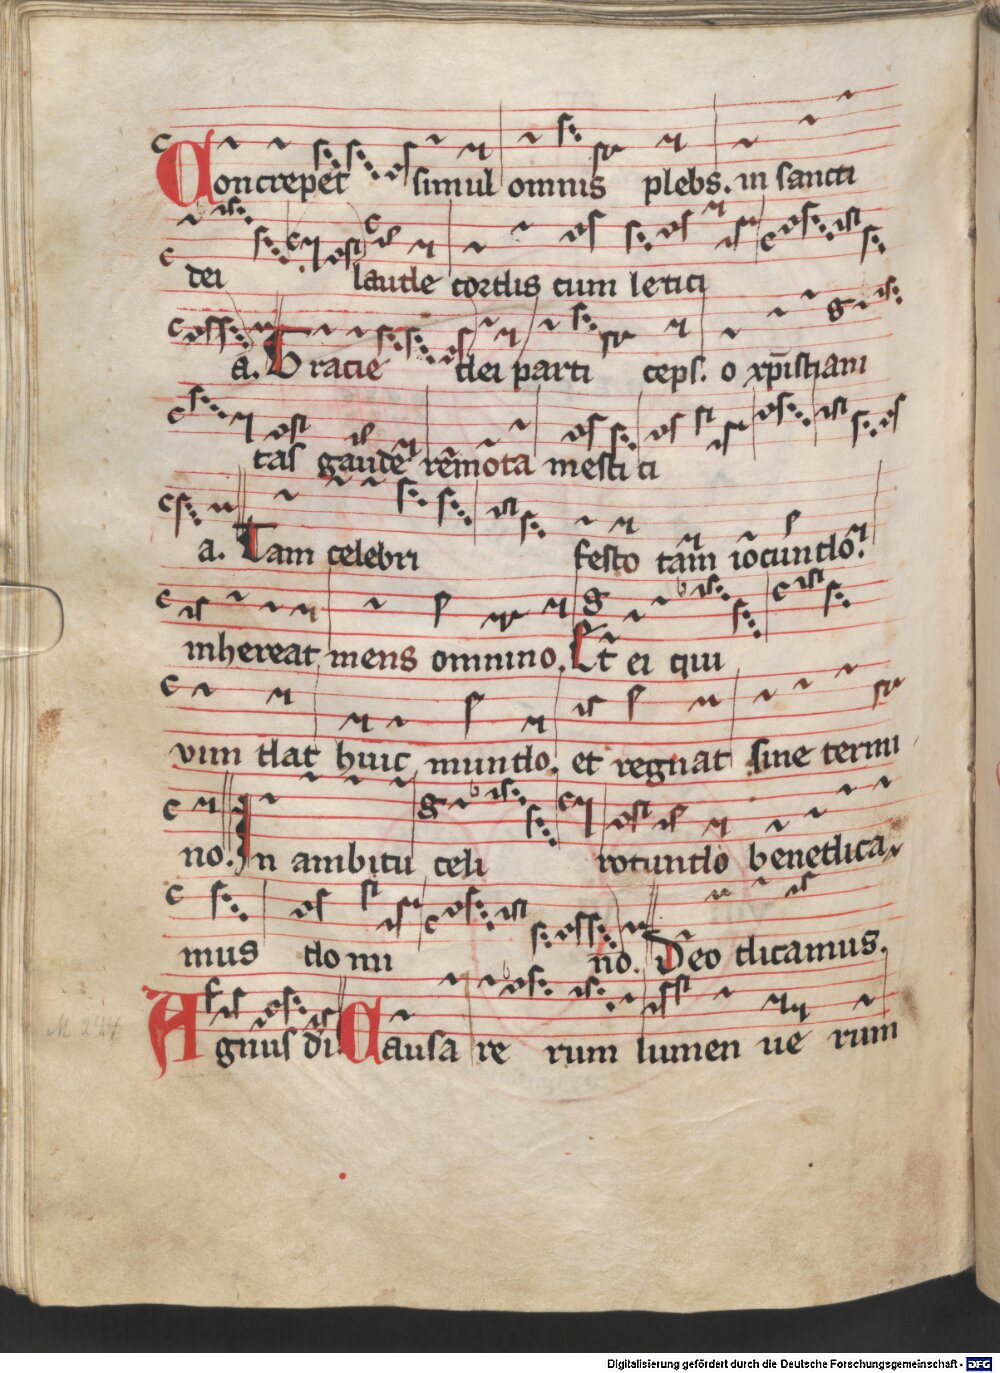 Concrepet simul omnis plebs. in sancti
dei laude cordis cum letici
a. Gracie dei parti ceps. o xp̄istiani
tas gaude remota mesti ti
a. Tam celebri festo tam iocundo.
inhereat mens omnino. Et ei qui
vim dat huic mundo. et regnat sine termi
no. In ambitu celi rotundo benedica
mus domi no. Deo dicamus.
Agnus d̄i Causa re rum lumen ue rum
M 244
Digitalisierung gefördert durch die Deutsche Forschungsgemeinschaft - DFG